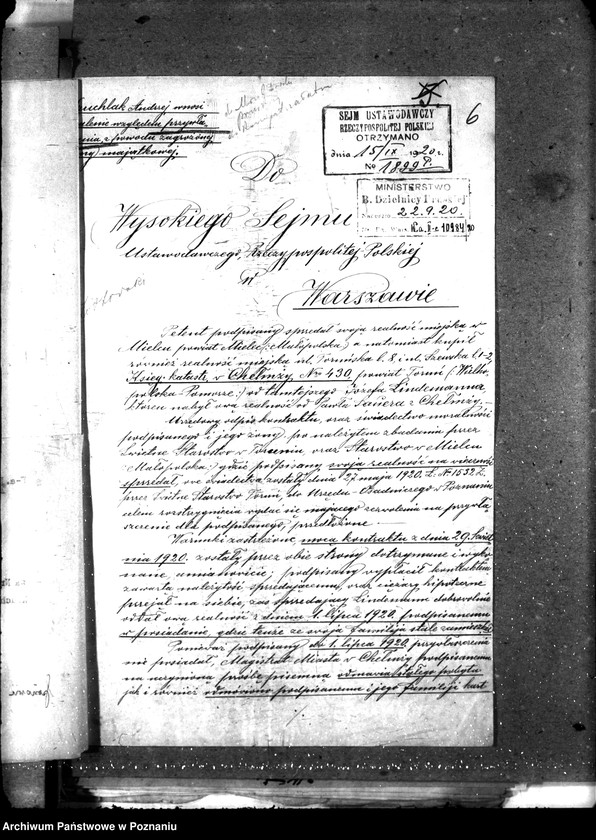 uchlak Andrzej wnosi
zażalenie względem przywła
z powodu zagrożonej
majątkowej.
6
SEJM USTAWODAWCZY
RZECZYPOSPOLITEJ POLSKIEJ
OTRZYMANO
dnia 15/IX 1920 r.
No 1899 P.
MINISTERSTWO
B. Dzielnicy Pruskiej
22.9.20.
Do
Wysokiego Sejmu
Ustawodawczego Rzeczypospolitej Polskiej
w
Warszawie
Petent podpisany sprzedał swoją realność miejską w
Mielcu powiat Mielec, Małopolska, a natomiast kupił
również realność miejską ul. Toruńska l. 8, i ul. Szewska l. 1-2,
Księg. katastr. w Chełmży No 430, powiat Toruń (: Wielko
polska Pomorze:) od tamtejszego Józefa Lindemanna
któren nabył ową realność od Pawła z Chełmży.—
Urzędowy odpis kontraktu, oraz świadectwo moralności
podpisanego i jego żony, po należytem zbadaniu przez
Świetne Starostwo w Toruniu, oraz Starostwo w Mielcu
Małopolska, / gdzie podpisany swoją realność na wieczność
sprzedał, owe świadectwa zostały dnia 27 maja 1920. L. No 1532 L.
przez Świetne Starostwo Toruń, do Urzędu Osadniczego w Poznaniu
celem rozstrzygnięcia wydać się mającego zezwolenia na przywła
szczenie dla podpisanego, przedłożone —
Warunki zastrzeżone, mocą kontraktu z dnia 29. Kwiet
nia 1920. zostały przez obie strony dotrzymane i wyko
nane, a mianowicie; podpisany wypłacił kontraktem
zawartą należytość sprzedającemu, oraz ciężary hipoteczne
przejął na siebie, zaś sprzedający Lindemann dobrowolnie
oddał ową realność z dniem 1. lipca 1920, podpisanemu
w posiadanie, gdzie tenże ze swoją familiją stale zamieszkał
Ponieważ podpisany do 1. lipca 1920, przynależności
nie posiadał, Magistrat Miasta w Chełmży podpisanemu
na wczynioną prośbę pisemną odmawia stałego pobytu
jak i również odmówiono podpisanemu i jego familiji kart
Archiwum Państwowe w Poznaniu